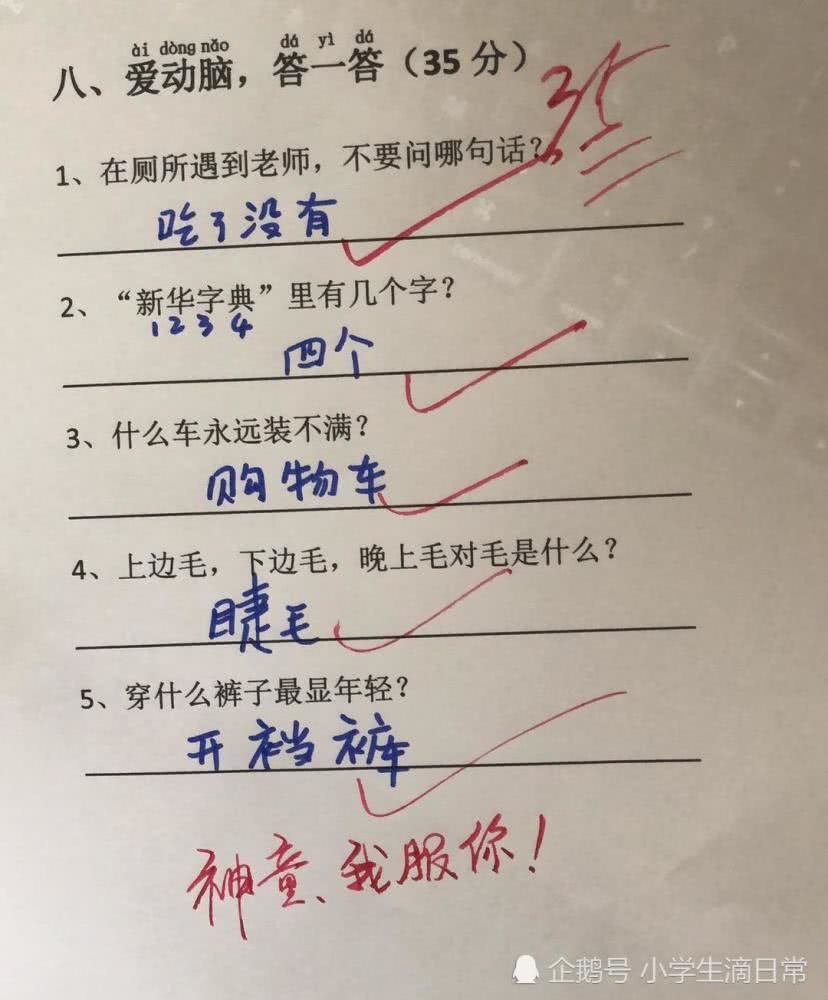 ài dòng nǎo dá yì dá
八、爱动脑，答一答（35 分）
35
1、在厕所遇到老师，不要问哪句话？
吃了没有
2、“新华字典”里有几个字？
1 2 3 4
四个
3、什么车永远装不满？
购物车
4、上边毛，下边毛，晚上毛对毛是什么？
睫毛
5、穿什么裤子最显年轻？
开裆裤
神童、我服你！
企鹅号 小学生滴日常